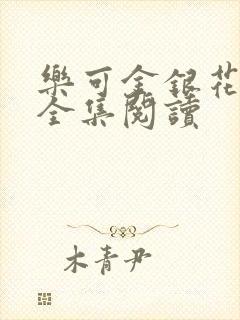 樂可金銀花
全集閱讀
木青尹